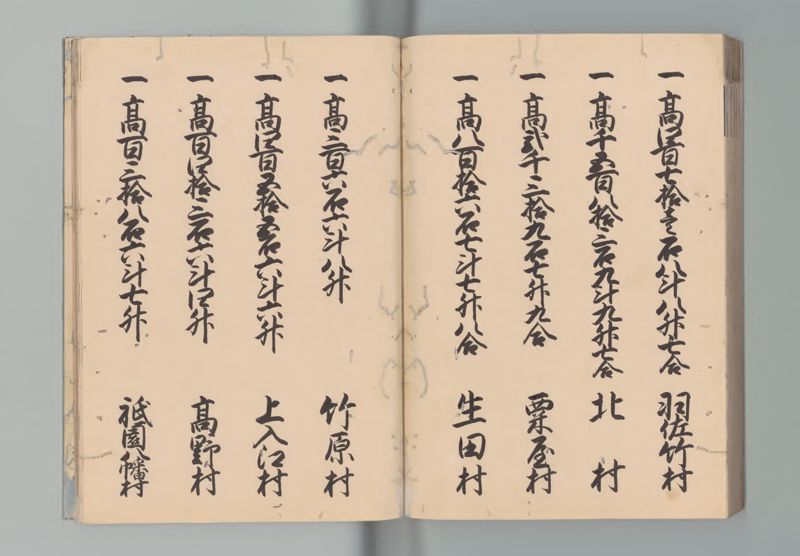 一高四百七拾壱石八斗八升七合　羽佐竹村
一高千五百八拾三石九斗九升七合　北村
一高弐千三拾九石七升九合　粟屋村
一高八百拾六石七斗七升八合　生田村
一高三百六石六斗八升　竹原村
一高四百五拾五石六斗六升　上入江村
一高百四拾三石六斗四升　高野村
一高百三拾八石六斗七升　祇園八幡村